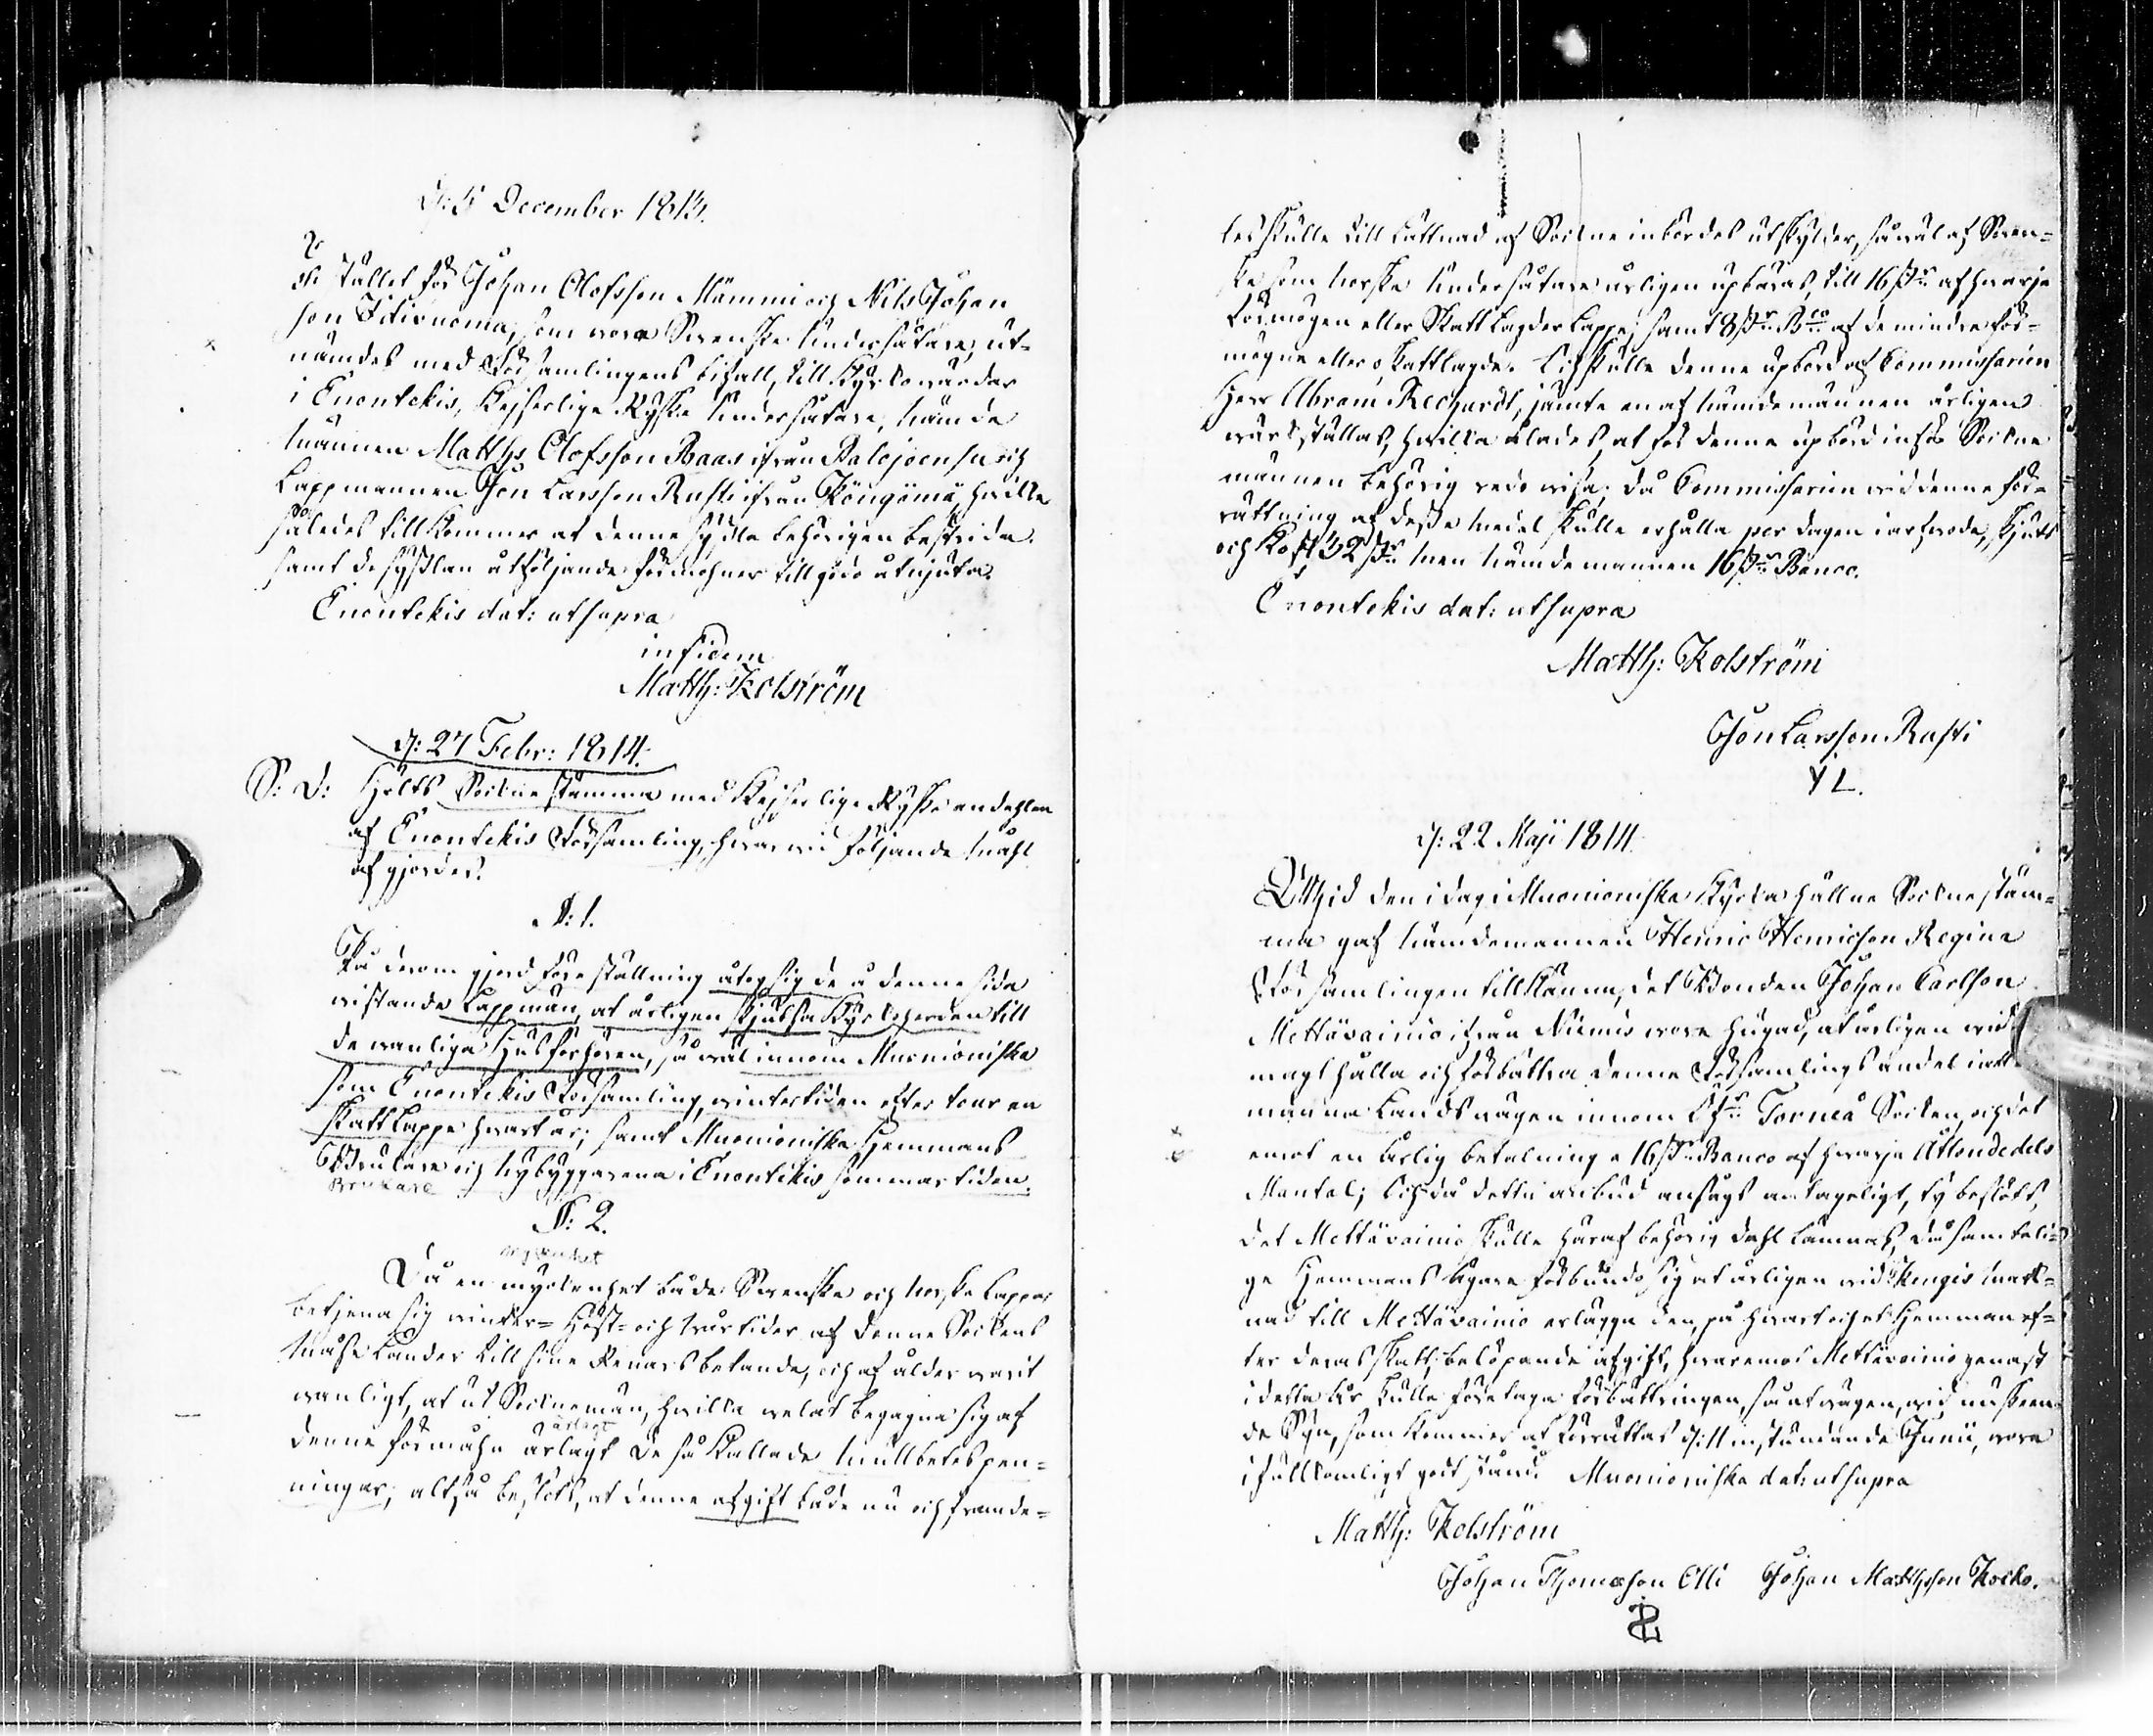 d: 5 December 1813.
I stället för Johan Olofsson Mämmi och Nils Johan
son Fitivuoma, som voro Svenske Undersåtare, ut-
nämdes med Församlingens bifall, till Kyrkovärdar
i Enontekis, Kejserlige Ryske Undersåtare, Nämde
männen Matths Olofsson Raas ifrån Palojoensu och
Lappmannen Jon Larsson Rasti ifrån Köngömä, hvilka
således tillkommer at denne sysla behörigen bestrida
samt de sysslan åtföljande förmohner till godo åtnjuta.
Enontekis dat: ut supra
in fidem
Matth: Kolström
d: 27 Febr: 1814.
S: D: Hölts Sockne stämma med Kejserlige Ryska andehlen
af Enontekis Församling, hvarvid följande måhl
afgjordes.
N: 1.
På derom gjord föreställning åtog sig de å denne sida
vistande Lappmän, at årligen skjutsa Kyrkoherden till
de vanliga Husförhören, så väl innom Muonioniska
som Enontekis Församling, vintertiden efter tour en
skattLappe hvart år; samt Muonioniska Hemmans
Brukare och nybyggarena i Enontekis sommartiden.
Brukare
N: 2.
myckenhet
Då en myckenhet både Svenske och norske Lappar
betjena sig vinter- Höst- och vårtider af denne Sockens
måse Landes till sine Renars betande, och af ålder varit
vanligt, at ut Socknemän, hvilka velat begagna sig af
årlagt
denne förmåhn årlagt de så kallade mullbetespen-
ningar; altså beslöts, at denne afgift både nu och framde-
les skulle till lättnad af Sockne inbördes utskylder, såväl af Sven-
ske som norske Undersåtare årligen upbäras, till 16 skr af hvarje
förmögen eller Skattlagder Lappe, samt 8 skr Bco af de mindre för-
mögne eller oskattlagde. Och skulle denne upbörd af Commissarien
Herr Abram Rechardt, jämte en af Nämdemännen årligen
värkställas, hvilka ålades, at för denne upbörd inför Sockne
männen behörig redo visa; då Commissarien vid denne för-
rättning af desse medel skulle erhålla per dagen i arfvode, skjuts
och Kost 32 skr men nämdemannen 16 skr Banco.
Enontekis dat: ut supra
Matth: Kolström
Jon Larsson Rasti
Y L.
d: 22 Maji 1814.
Wid den i dag i Muonioniska Kyrka hållne Sockne stäm-
ma gaf nämdemannen Henric Henricson Regina
Församlingen tillkänna, det Bonden Johan Carlson
Mettävainio ifrån Niemis vore hugad, at årligen vid
magt hålla och förbättra denne Församlings andel i all
männa Landsvägen innom Öfr Torneå Socken, och det
emot en årlig betalning a 16 skr Banco af hvarje Åttondedels
Mantal; Och då detta anbud ansågs antageligt, ty beslöts,
det Mettävainio skulle häraf behörig dehl lämnas, då samteli-
ge Hemmans Ägare förbundo sig at årligen vid Kengis mark-
nad till Mettävainio erlägga den, på hvart och et Hemman ef-
ter deras skatt, belöpande afgift, hvaremot Mettävainio genast
i detta år skulle företaga förbättringen, så at vägen, vid nu skeen-
de Syn, som kommer at förrättas d: 11 instundande Junii, vore
i fullkomligt godt stånd. Muonioniska dat: ut supra
Matth: Kolström
Johan Thomasson Elli Johan Matthsson Kocko.